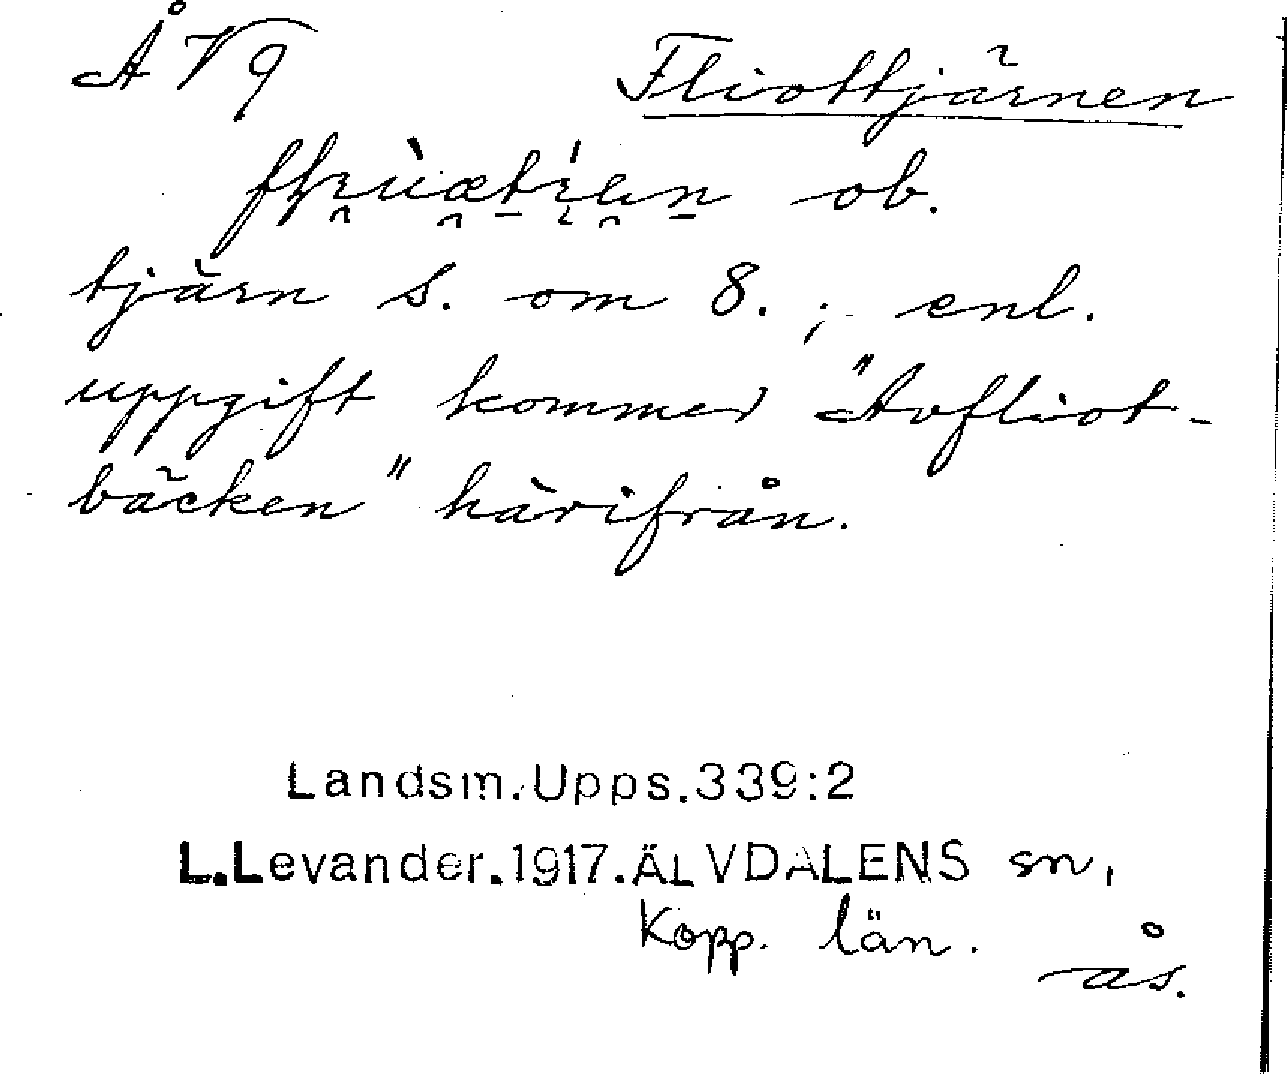 Å V 9 Fliottjärnen
ob.
tjärn S. om 8. ; enl.
uppgift kommer "Avfliot-
bäcken" härifrån.
Landsm. Upps. 339:2
L. Levander. 1917. ÄLVDALENS sn,
Kopp. län.
ås.